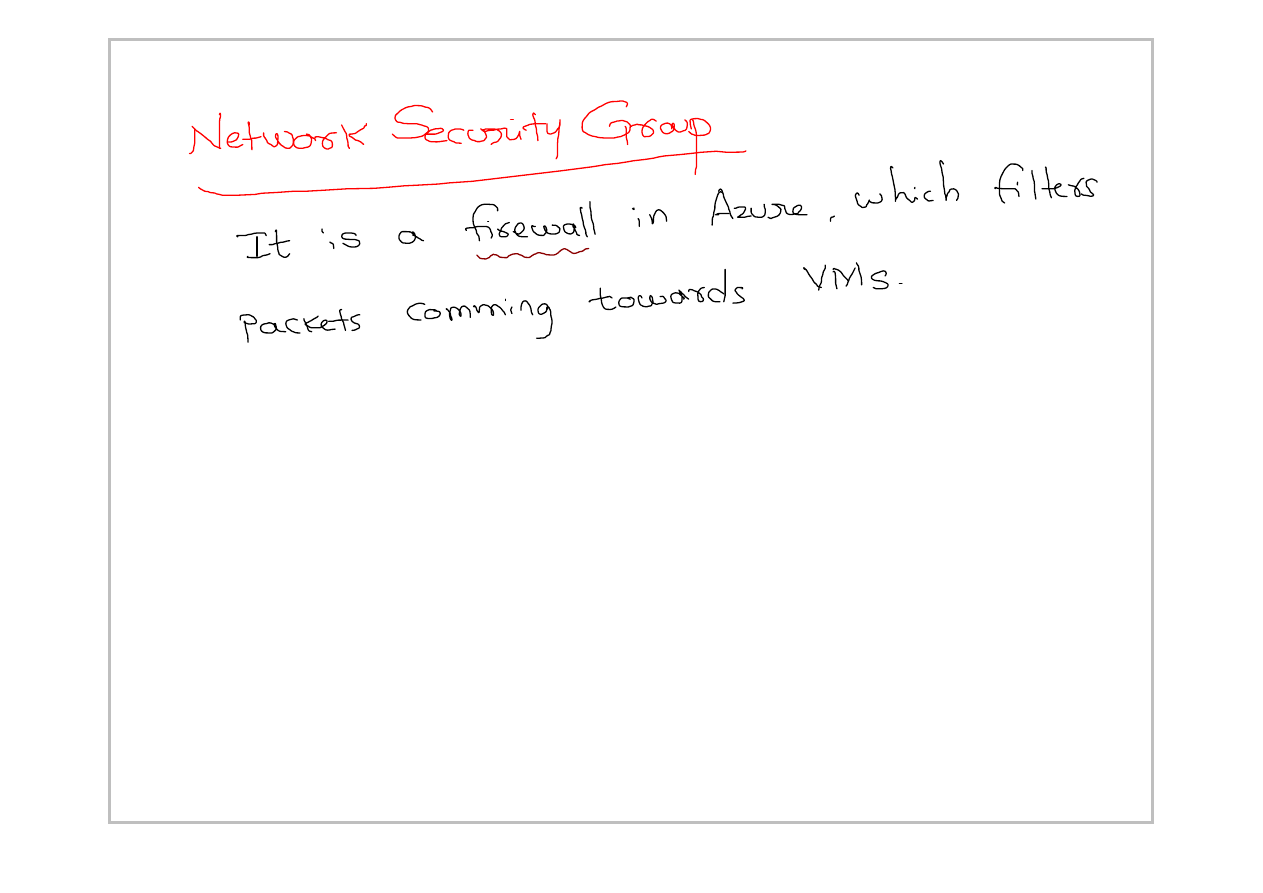 Network Security Group
It is a firewall in Azure, which filters
Packets comming towards VMs.